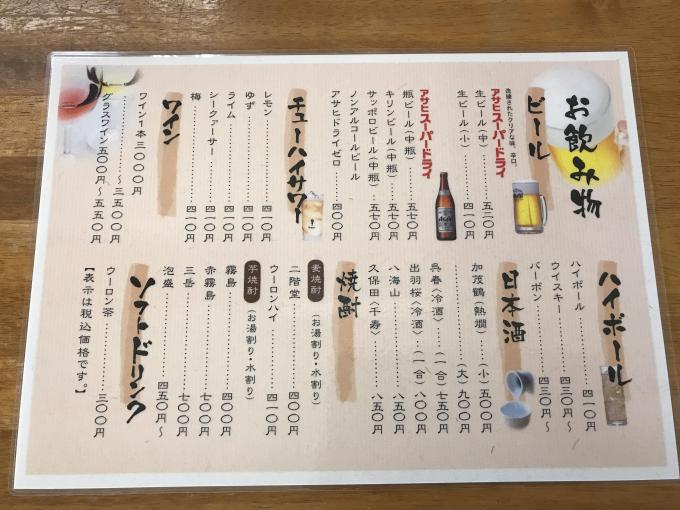 お飲み物
ビール
洗練されたクリアな味、辛口。
アサヒスーパードライ
生ビール(中)……五二〇円
生ビール(小)……四一〇円
アサヒスーパードライ
瓶ビール(中瓶)……五七〇円
キリンビール(中瓶)……五七〇円
サッポロビール(中瓶)……五七〇円
ノンアルコールビール
アサヒドライゼロ……四〇〇円
チューハイサワー
レモン……四一〇円
ゆず……四一〇円
ライム……四一〇円
シークァーサー……四一〇円
梅……四一〇円
ワイン
ワイン1本 三〇〇〇円
……〜三五〇〇円
グラスワイン 五〇〇円〜五五〇円
ハイボール
ハイボール……四一〇円
ウイスキー……四三〇円〜
バーボン……四三〇円〜
日本酒
加茂鶴(熱燗)……(小)五〇〇円
……(大)九〇〇円
呉春〈冷酒〉……(一合)七五〇円
出羽桜〈冷酒〉……(一合)八〇〇円
八海山……八五〇円
久保田〈千寿〉……八五〇円
焼酎
麦焼酎(お湯割り・水割り)
二階堂……四〇〇円
ウーロンハイ……四一〇円
芋焼酎(お湯割り・水割り)
霧島……四〇〇円
赤霧島……七〇〇円
三岳……七〇〇円
泡盛……四五〇円〜
ソフトドリンク
ウーロン茶……三〇〇円
【表示は税込価格です。】